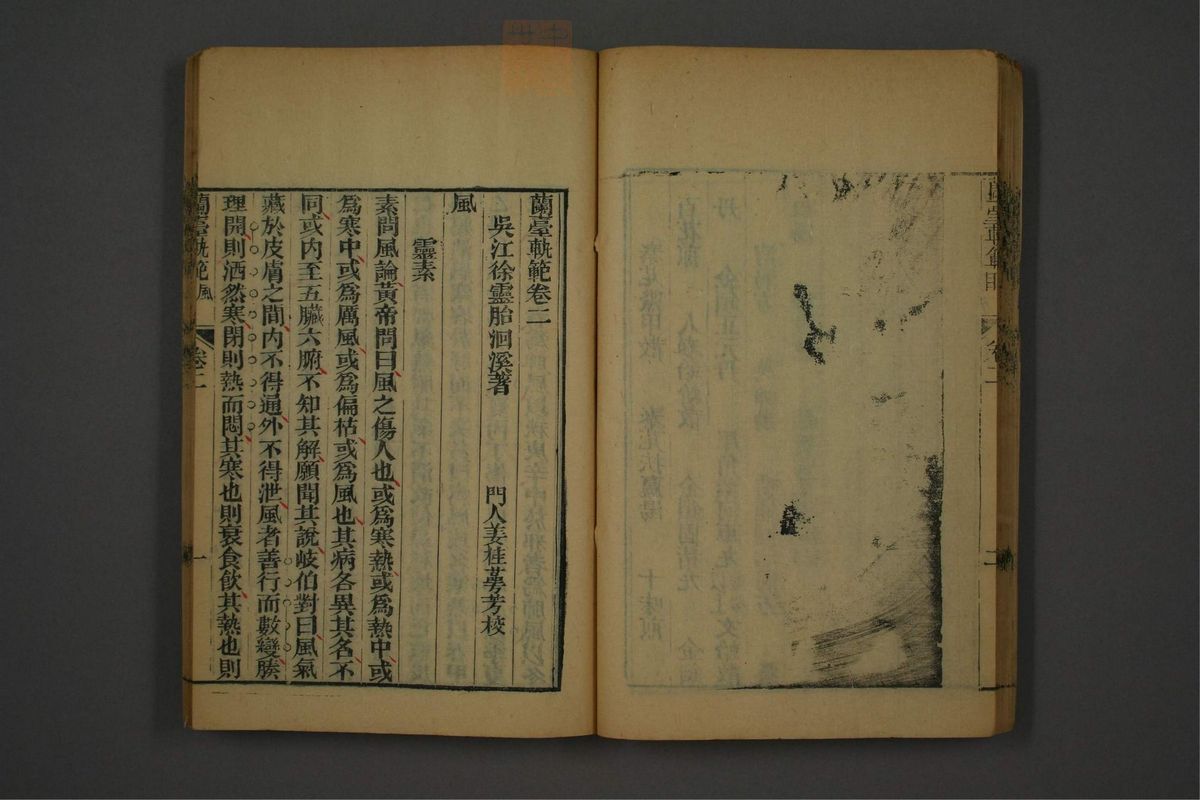 蘭臺軌範目
卷二
二
蘭臺軌範卷二
吳江徐靈胎洄溪著　門人姜桂蕚芳校
風
靈素
素問風論黃帝問曰風之傷人也或爲寒熱或爲熱中或
爲寒中或爲厲風或爲偏枯或爲風也其病各異其名不
同或內至五臟六腑不知其解願聞其說岐伯對曰風氣
藏於皮膚之間內不得通外不得泄風者善行而數變腠
理開則洒然寒閉則熱而悶其寒也則衰食飲其熱也則
蘭臺軌範　風
卷二
一